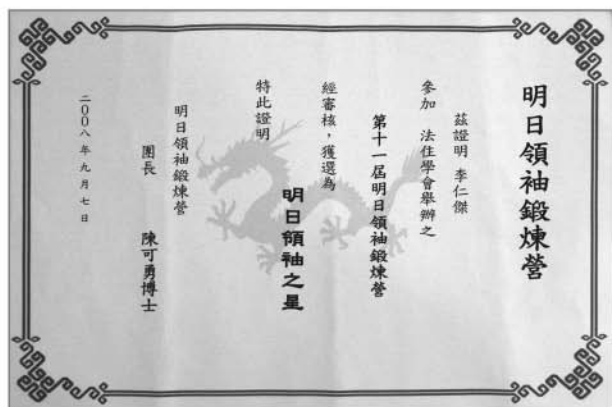 明日領袖鍛煉營
茲證明 李仁傑
參加 法住學會舉辦之
第十一屆明日領袖鍛煉營
經審核，獲選為
明日領袖之星
特此證明
明日領袖鍛煉營
團長 陳可勇博士
二〇〇八年九月七日